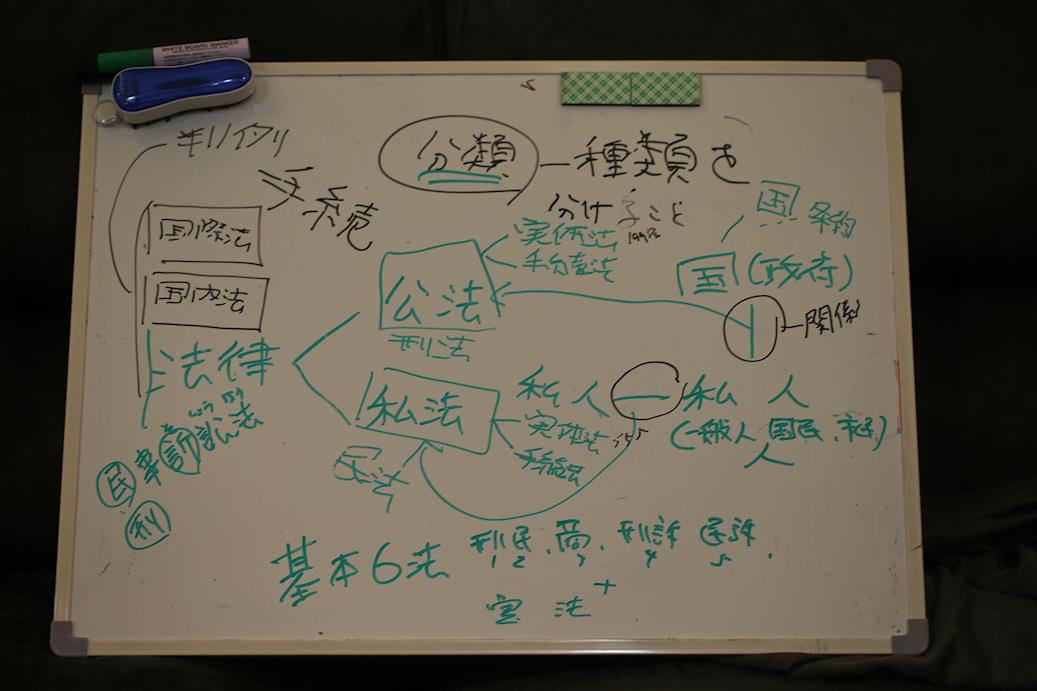 WHITE BOARD MARKER
分類 ― 種類を
分けること
手続
国際法
国内法
法律
公法
刑法
実体法
国(政府)
関係
国 条約
私法
民法
私人 ― 私人
実体法
手続法
(一般人、国民、市民)
人
民事訴訟法
そう しょう
刑
基本6法 刑 民、商、刑訴 民訴、
1 2 3 4 5
+
憲法